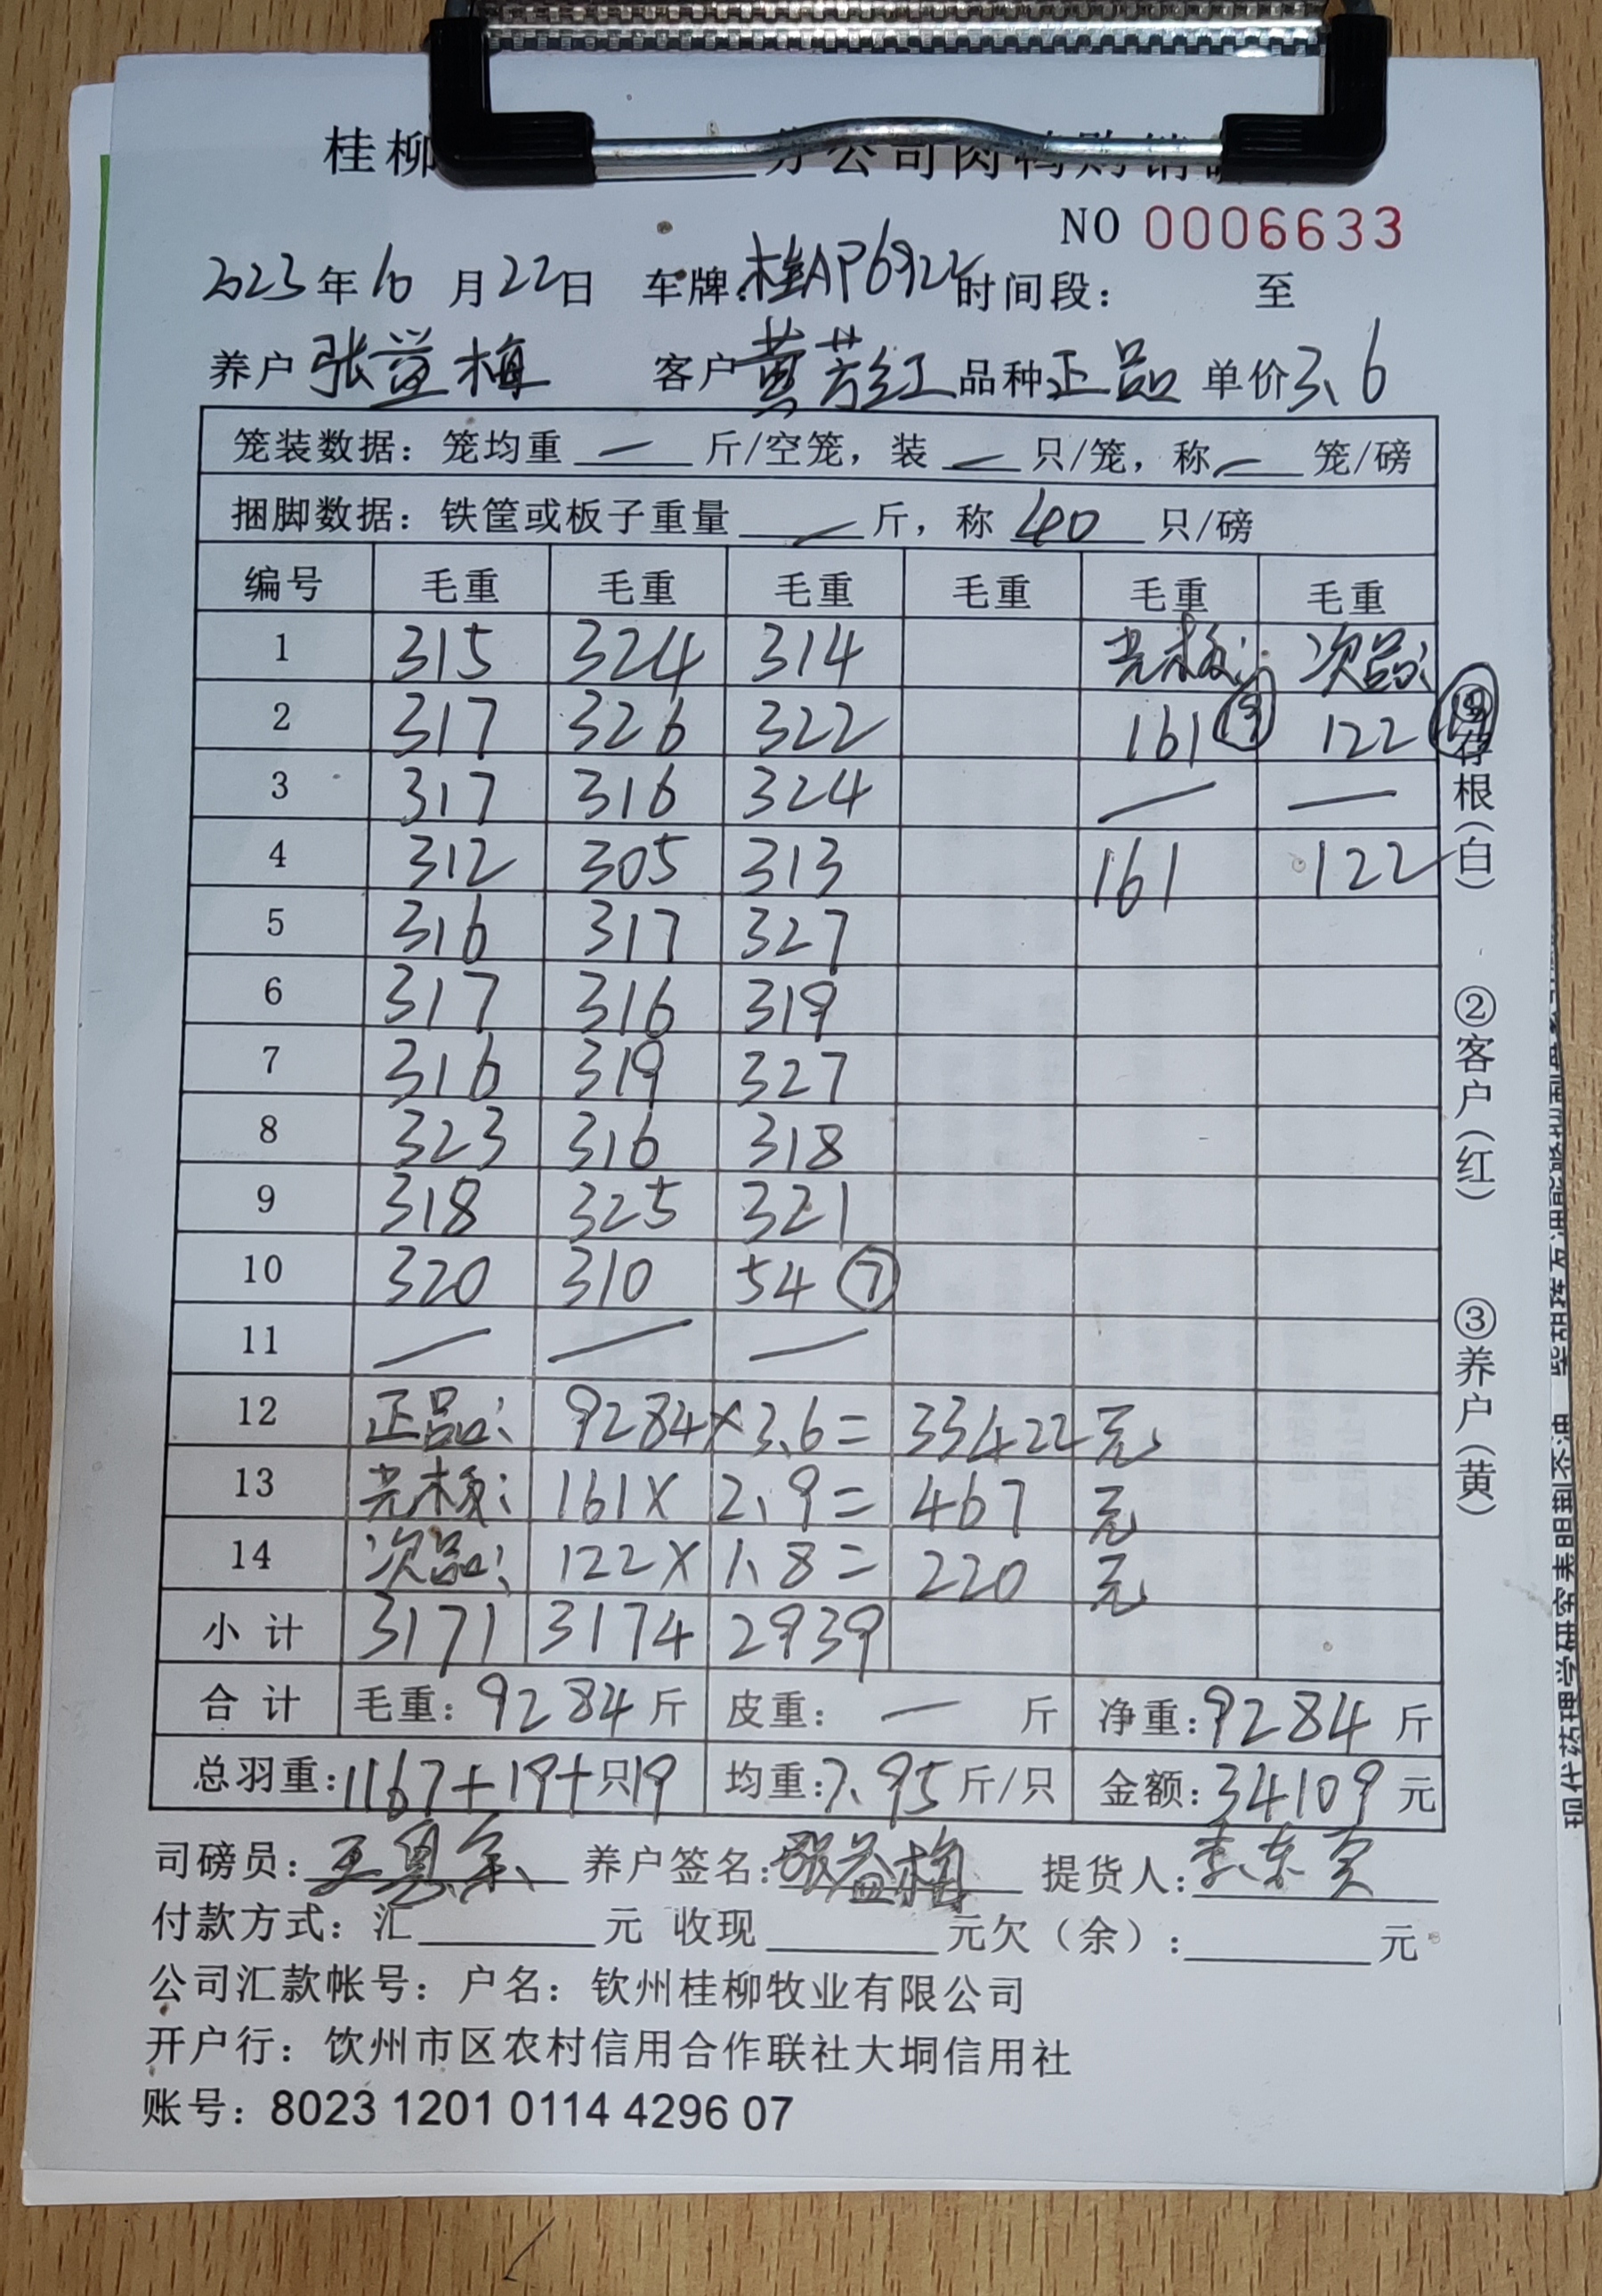 桂柳 分公司肉鸭购销
NO 0006633
2023年10月22日 车牌:桂AP6922 时间段: 至
养户 张益梅 客户 黄芳红 品种 正品 单价 3.6
笼装数据:笼均重 — 斤/空笼,装 — 只/笼,称 — 笼/磅
捆脚数据:铁筐或板子重量 — 斤,称 40 只/磅
编号 毛重 毛重 毛重 毛重 毛重 毛重
1 315 324 314 次品:
2 317 326 322 161 122
3 317 316 324 — —
4 312 305 313 161 122
5 316 317 327
6 317 316 319
7 316 319 327
8 323 316 318
9 318 325 321
10 320 310 54 ⑦
11 — — —
12 正品: 9284×3.6= 33422元
13 161× 2.9= 467 元
14 次品: 122× 1.8= 220 元
小计 3171 3174 2939
合计 毛重:9284斤 皮重: — 斤 净重:9284斤
总羽重:1167+19+只19 均重:7.95斤/只 金额:34109元
司磅员: 养户签名:张益梅 提货人:
付款方式:汇 元 收现 元欠(余): 元
公司汇款帐号:户名:钦州桂柳牧业有限公司
开户行:饮州市区农村信用合作联社大垌信用社
账号:8023 1201 0114 4296 07
存根(白)
②客户(红)
③养户(黄)